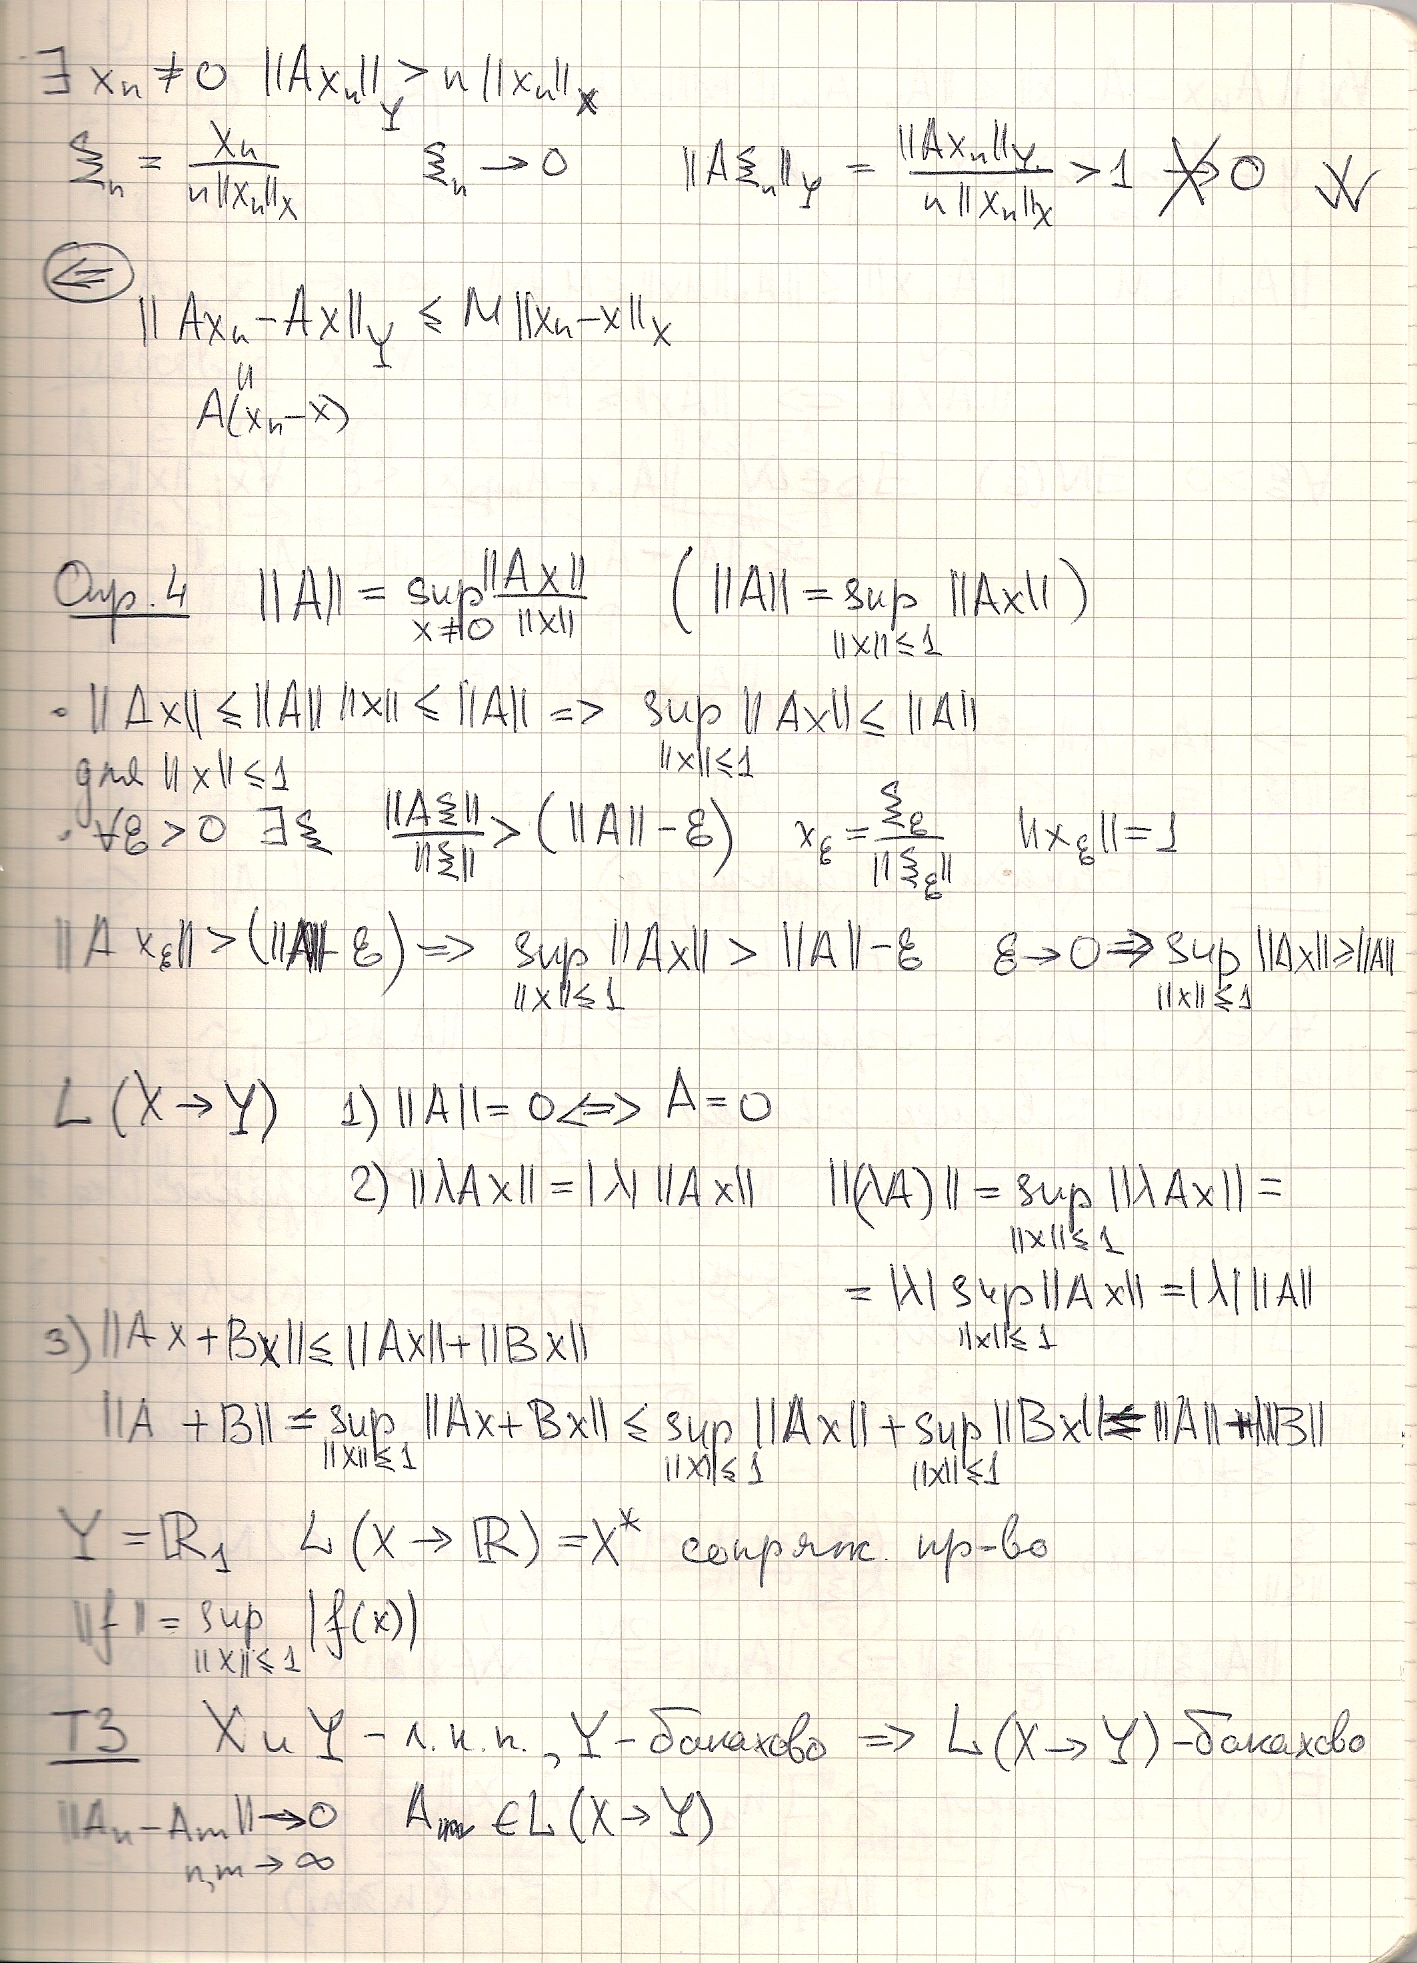 ∃ xₙ ≠ 0 ||Axₙ||_Y > n ||xₙ||_X
ξₙ = xₙ / (n ||xₙ||_X) ξₙ → 0 ||Aξₙ||_Y = ||Axₙ||_Y / (n ||xₙ||_X) > 1 ↛ 0
⇐
|| Axₙ – Ax||_Y ≤ M ||xₙ – x||_X
=
A(xₙ – x)
Опр. 4 ||A|| = sup_{x≠0} ||Ax|| / ||x|| ( ||A|| = sup_{||x||≤1} ||Ax|| )
• ||Ax|| ≤ ||A|| ||x|| ≤ ||A|| => sup_{||x||≤1} ||Ax|| ≤ ||A||
для ||x|| ≤ 1
• ∀ε > 0 ∃ξ ||Aξ|| / ||ξ|| > (||A|| – ε) x_ε = ξ_ε / ||ξ_ε|| ||x_ε|| = 1
||A x_ε|| > (||A|| – ε) => sup_{||x||≤1} ||Ax|| > ||A|| – ε ε → 0 => sup_{||x||≤1} ||Ax|| ≥ ||A||
L (X → Y) 1) ||A|| = 0 <=> A = 0
2) ||λAx|| = |λ| ||Ax|| ||(λA)|| = sup_{||x||≤1} ||λAx|| =
= |λ| sup_{||x||≤1} ||Ax|| = |λ| ||A||
3) ||Ax + Bx|| ≤ ||Ax|| + ||Bx||
||A + B|| = sup_{||x||≤1} ||Ax + Bx|| ≤ sup_{||x||≤1} ||Ax|| + sup_{||x||≤1} ||Bx|| = ||A|| + ||B||
Y = ℝ₁ L (X → ℝ) = X* сопряж. пр-во
||f|| = sup_{||x||≤1} |f(x)|
Т3 X и Y – л.н.п., Y – банахово => L (X → Y) – банахово
||Aₙ – Aₘ|| → 0 Aₘ ∈ L (X → Y)
n,m → ∞